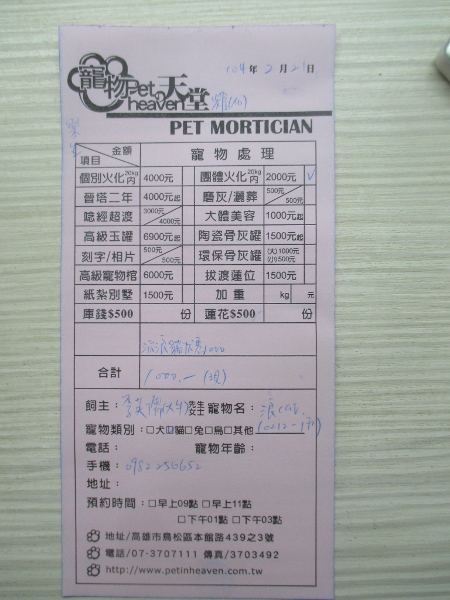 104年2月2日
寵物Pet heaven天堂
PET MORTICIAN
項目 金額 寵物處理
個別火化20kg內 4000元 團體火化20kg內 2000元 ✓
晉塔二年 4000元起 磨灰/灑葬 500元/500元
唸經超渡 3000元/4000元 大體美容 1000元起
高級玉罐 6900元起 陶瓷骨灰罐 1500元起
刻字/相片 500元/500元 環保骨灰罐 (大)1000元 (小)500元
高級寵物棺 6000元 拔渡蓮位 1500元
紙紮別墅 1500元 加重 kg 元
庫錢$500 份 蓮花$500 份
1000
合計 1000.-(現)
飼主: 先生 女士 寵物名: 浪cat
寵物類別: □犬□貓□兔□鳥□其他
電話: 寵物年齡:
手機: 0982
地址:
預約時間: □早上09點 □早上11點
□下午01點 □下午03點
地址/高雄市鳥松區本館路439之3號
電話/07-3707111 傳真/3703492
http://www.petinheaven.com.tw